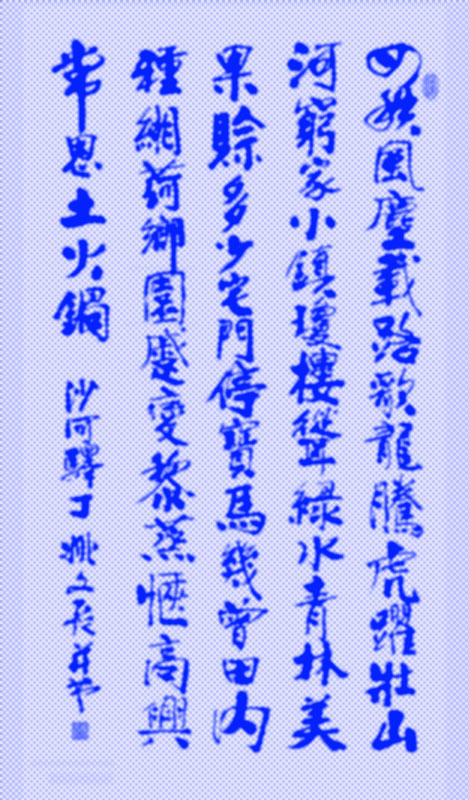 四秩風塵載路歌龍騰虎躍壯山
河窮家小鎮瓊樓聳綠水青林美
果賒多少宅門停寶馬幾曾田內
種網荷鄉園蹙變黎蒸愜高興
常思土火鍋 沙河驛丁姚文長并書